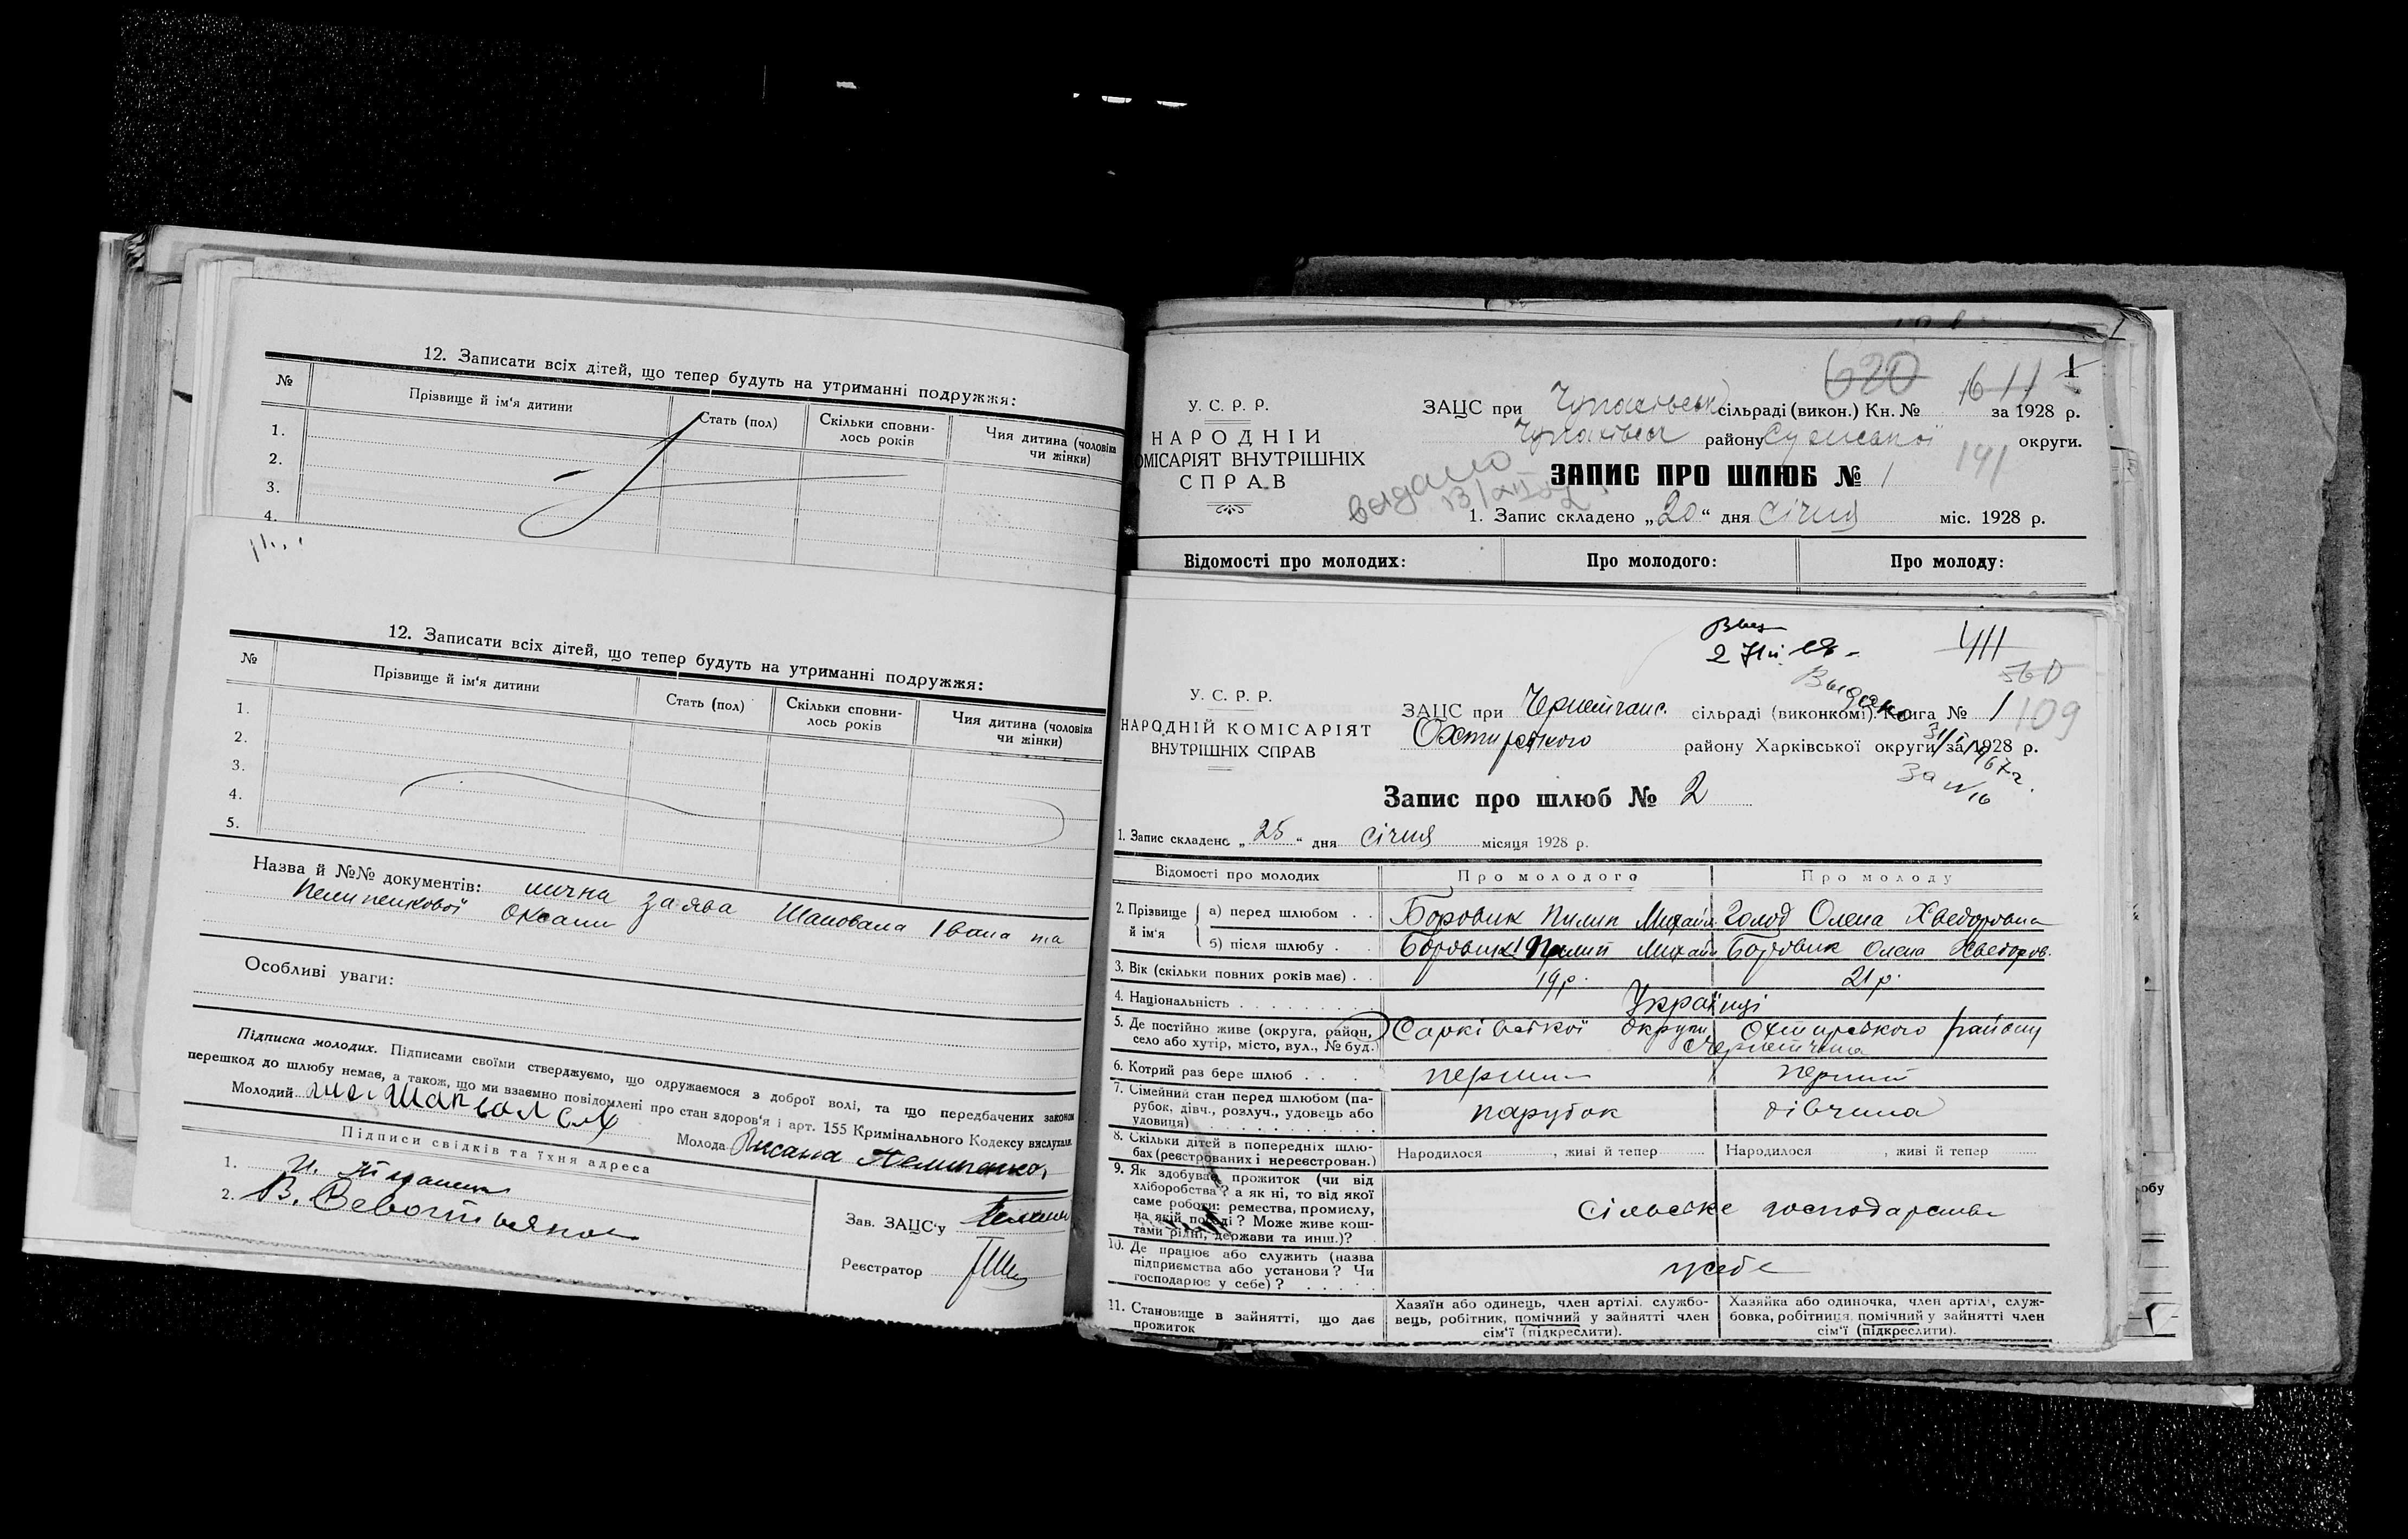 12. Записати всіх дітей, що тепер будуть на утриманні подружжя:
№ Прізвище й ім'я дитини Стать (пол) Скільки сповни-лось років Чия дитина (чоловіка чи жінки)
1.
2.
3.
4.
12. Записати всіх дітей, що тепер будуть на утриманні подружжя:
№ Прізвище й ім'я дитини Стать (пол) Скільки сповни-лось років Чия дитина (чоловіка чи жінки)
1.
2.
3.
4.
5.
Назва й №№ документів: заява Шаповала Івана та
Пелипенкової Оксани
Особливі уваги:
Підписка молодих. Підписами своїми стверджуємо, що одружаємося з доброї волі, та що передбачених законом
перешкод до шлюбу немає, а також, що ми взаємно повідомлені про стан здоров'я і арт. 155 Кримінального Кодексу вислухали.
Молодий Молода Оксана Пелипенко
Підписи свідків та їхня адреса
1.
2. В.
Зав. ЗАЦС'у
Реєстратор
620 611 1
У. С. Р. Р.
НАРОДНІЙ
ОМІСАРІЯТ ВНУТРІШНІХ
СПРАВ
ЗАЦС при Чупахівськ сільраді (викон.) Кн. № за 1928 р.
Чупахівськ району Сумської округи.
191
видано
ЗАПИС ПРО ШЛЮБ № 1
1. Запис складено „20" дня січня міс. 1928 р.
Відомості про молодих: Про молодого: Про молоду:
411
560
109
У. С. Р. Р.
НАРОДНІЙ КОМІСАРІЯТ
ВНУТРІШНІХ СПРАВ
Выдано
31/I 1967 г.
За N 16
ЗАЦС при Чернетчанс. сільраді (виконкомі). Книга № 1
Охтирського району Харківської округи за 1928 р.
Запис про шлюб № 2
1. Запис складено „25" дня січня місяця 1928 р.
Відомості про молодих Про молодого Про молоду
2. Прізвище й ім'я
а) перед шлюбом . . Боровик Пилип Михайл Голод Олена Хведоровна
б) після шлюбу . . Боровик Пилип Михайл Боровик Олена Хведоров.
3. Вік (скільки повних років має) . . 19 р. 21 р.
4. Національність . . . Українці
5. Де постійно живе (округа, район, село або хутір, місто, вул., № буд.) Харківської округи Охтирського району
с. Чернетчина
6. Котрий раз бере шлюб . . . перший перший
7. Сімейний стан перед шлюбом (парубок, дівч., розлуч., удовець або удовиця) . . . парубок дівчина
8. Скільки дітей в попередніх шлюбах (реєстрованих і нереєстрован.) Народилося , живі й тепер Народилося , живі й тепер
9. Як здобуває прожиток (чи від хліборобства? а як ні, то від якої саме роботи: ремества, промислу, на якій посаді? Може живе коштами рідні, держави та инш.)? Сільське господарство
10. Де працює або служить (назва підприємства або установи? Чи господарює у себе)? . . . усебе
11. Становище в зайнятті, що дає прожиток
Хазяїн або одинець, член артілі, службовець, робітник, помічний у зайнятті член сім'ї (підкреслити).
Хазяйка або одиночка, член артілі, службовка, робітниця, помічний у зайнятті член сім'ї (підкреслити).